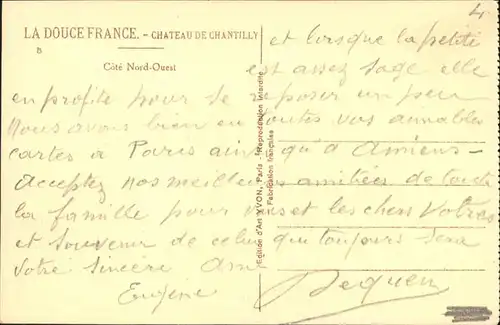 4
LA DOUCE FRANCE. - CHATEAU DE CHANTILLY
Côté Nord-Ouest
et lorsque la petite
est assez sage elle
en profite pour se reposer un peu
Nous avons bien eu toutes vos aimables
cartes à Paris ainsi qu'à Amiens
Acceptez nos meilleures amitiées de toute
la famille pour vous et les chers Votres
et souvenir de celui qui toujours sera
Votre sincère Ami
Eugène
Edition d'Art YVON, Paris - Reproduction Interdite
Fabrication française